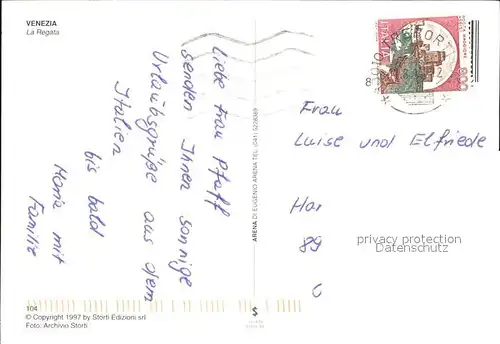 VENEZIA
La Regata
Liebe Frau Pfaff
senden Ihnen sonnige
Urlaubsgrüße aus dem
Italien
bis bald
Maria mit
Familie
ARENA DI EUGENIO ARENA TEL. (041) 5228389
ITALIA
800
Frau
Luise und Elfriede
Har
89
C
privacy protection
Datenschutz
104
© Copyright 1997 by Storti Edizioni srl
Foto: Archivio Storti